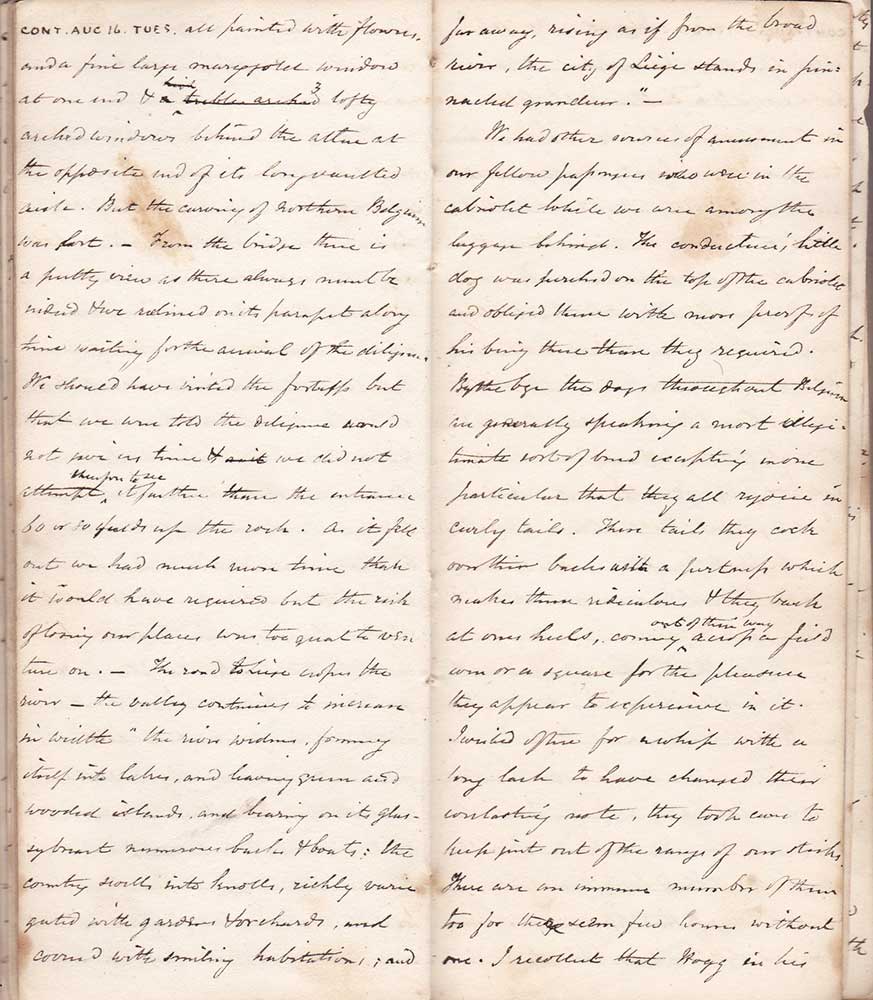 CONT. AUG 16. TUES. all painted with flowers,
and a fine large marygold window
at one end & a treble arched 3 lofty
arched windows behind the altar at
the opposite end of its long vaulted
aisle. But the carving of northern Belgium
was lost. — From the bridge there is
a pretty view as there always must be
indeed & we reclined on its parapet a long
time waiting for the arrival of the diligence.
We should have visited the fortress but
that we were told the diligence would
not give us time & we did not
attempt therefore to see it further than the entrance
60 or 80 up the rock. As it fell
out we had much more time than
it would have required but the risk
of losing our places was too great to ven
ture on. — The road to Liege crosses the
river — the valley continues to increase
in width "the river widens, forming
itself into lakes, and leaving green and
wooded islands, and bearing on its glas-
sy breast numerous barks & boats; the
country swells into knolls, richly varie
gated with gardens & orchards, and
covered with smiling habitations; and
far away, rising as if from the broad
river, the city of Liège stands in pin-
nacled grandeur." —
We had other sources of amusement in
our fellow passengers who were in the
cabriolet while we were among the
luggage behind. The conducteur's little
dog was perched on the top of the cabriolet
and obliged them with more proof of
his being there than they required.
By the bye the dogs throughout Belgium
are generally speaking a most illegi-
timate sort of breed excepting in one
particular that they all rejoice in
curly tails. These tails they cock
over their backs with a pertness which
makes them ridiculous & they bark
at ones heels, coming out of their way across a field
even or a square for the pleasure
they appear to experience in it.
I wished often for a whip with a
long lash to have changed their
everlasting note, they took care to
keep just out of the range of our sticks.
There are an immense number of them
too for there seem few houses without
one. I recollect that Hogg in his